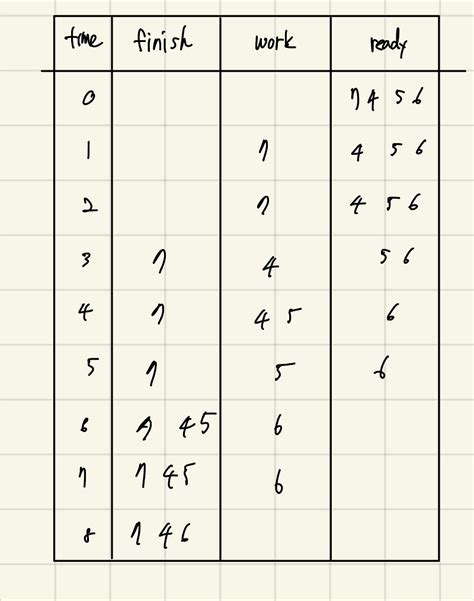 time finish work ready
0 7 4 5 6
1 7 4 5 6
2 7 4 5 6
3 7 4 5 6
4 7 4 5 6
5 7 5 6
6 7 4 5 6
7 7 4 5 6
8 7 4 6